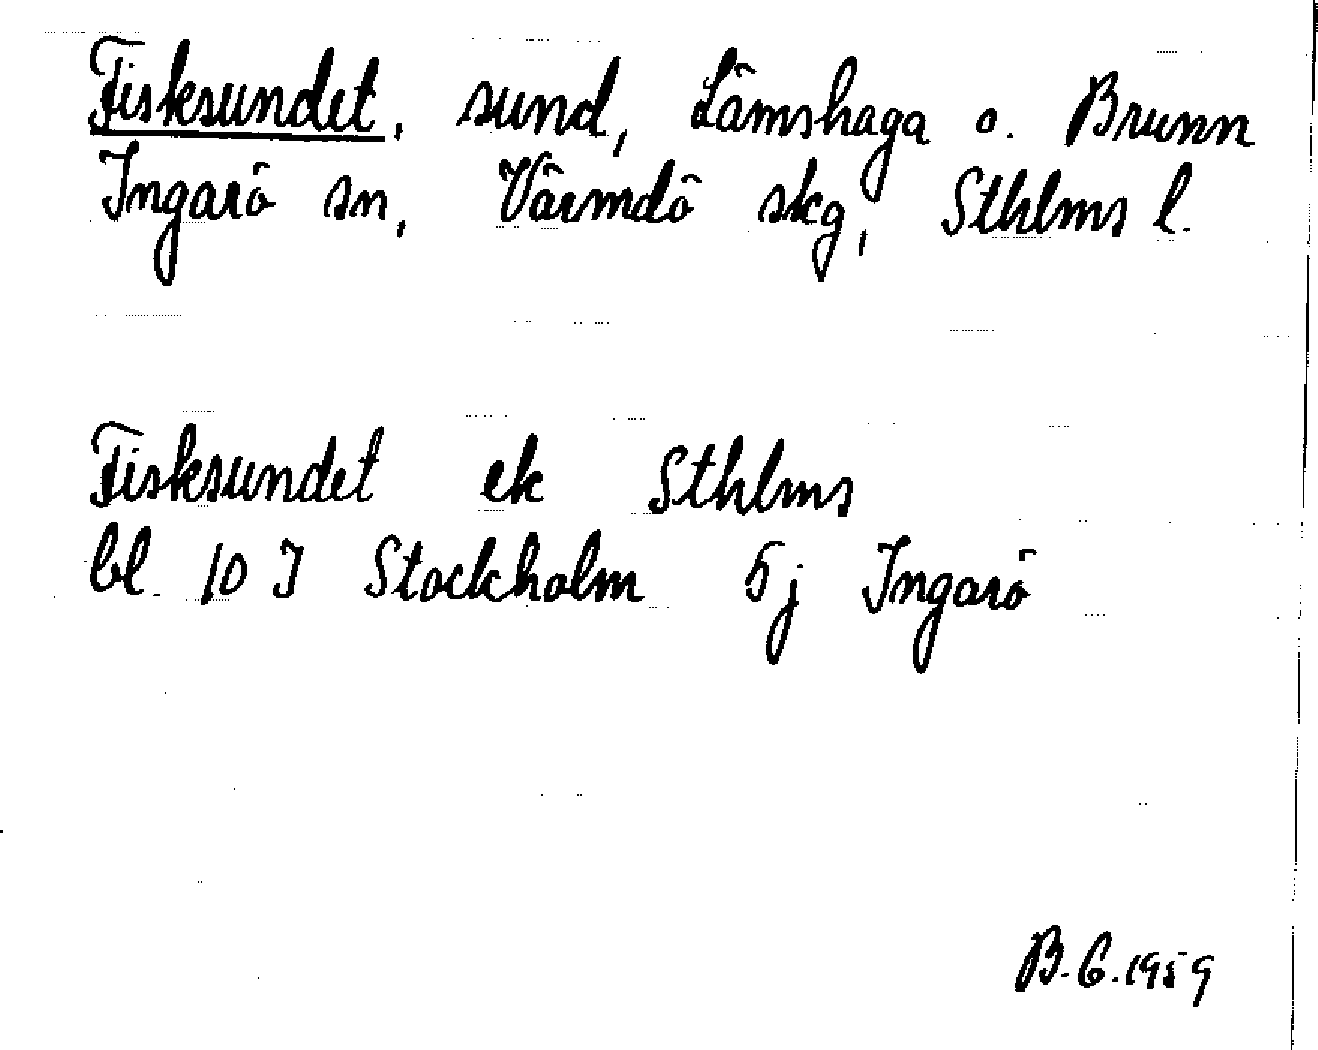 Fisksundet, sund, Lämshaga o. Brunn
Ingarö sn, Värmdö skg, Sthlms l.
Fisksundet ek Sthlms
bl 10 I Stockholm 5j Ingarö
B. G. 1959